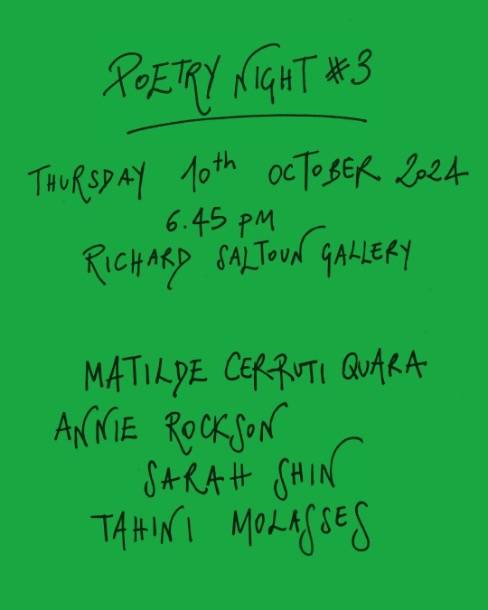 POETRY NIGHT #3
THURSDAY 10th OCTOBER 2024
6.45 PM
RICHARD SALTOUN GALLERY
MATILDE CERRUTI QUARA
ANNIE ROCKSON
SARAH SHIN
TAHINI MOLASSES